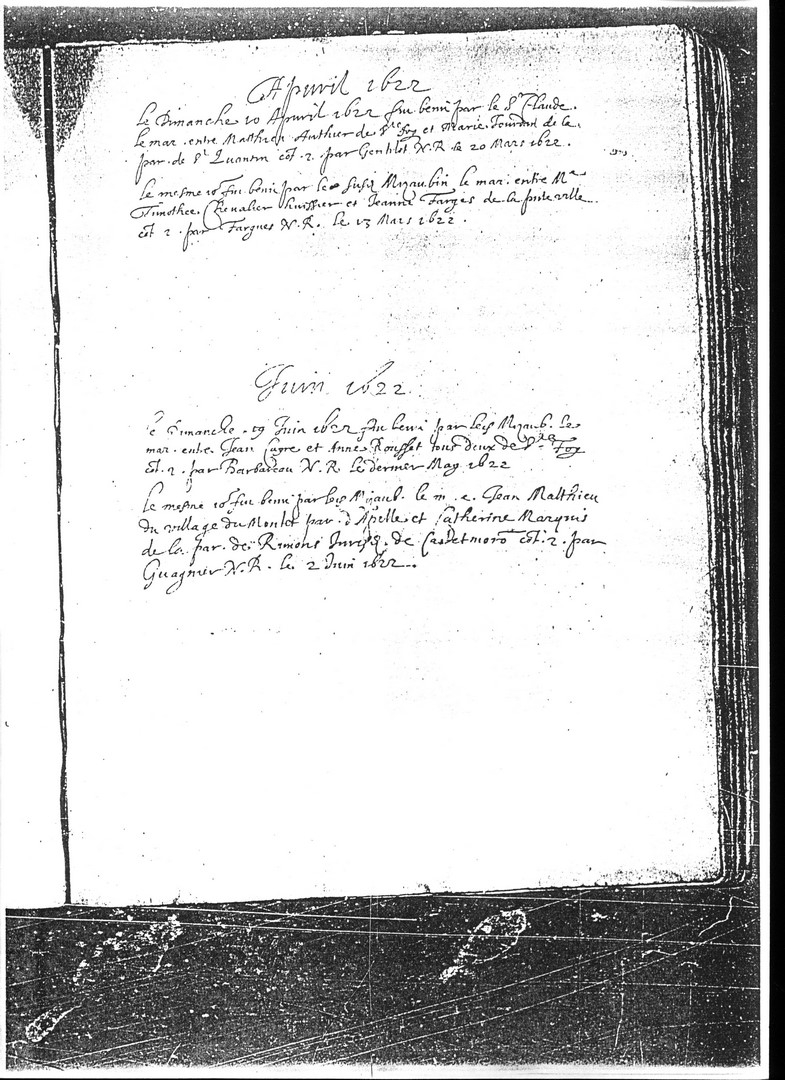 Apuril 1622
Le Dimanche 10 Apuril 1622 fut beni par le Sr Claude.
le mar. entre Matthieu Authier de Ste foy et Marie Tourdon de la
par. de St Quantin cot. 2. par Gentilot N.R. le 20 Mars 1622.
Le mesme io. fut beni par le susd Myaubin le mar. entre Me
Timothee Chevalier huissier et Jeanne Farges de la pnte ville
cot 2. par Fargues N.R. Le 13 Mars 1622.
Juin 1622.
e Dimanche 19 Juin 1622 fut beni par led Myaub. le
mar. entre Jean Cayre et Anne Rousset tous deux de Ste Foy
cot. 2. par Barbareou N.R. Le dernier May 1622
Le mesme io. fut beni par led Myaub. le m. e. Jean Malthieu
du village du Montet par. d'Apelle et Catherine Marquis
de la par. de Rimons Jurisd. de Castetmoro cot. 2. par
Guagnier N.R. le 2 Juin 1622.